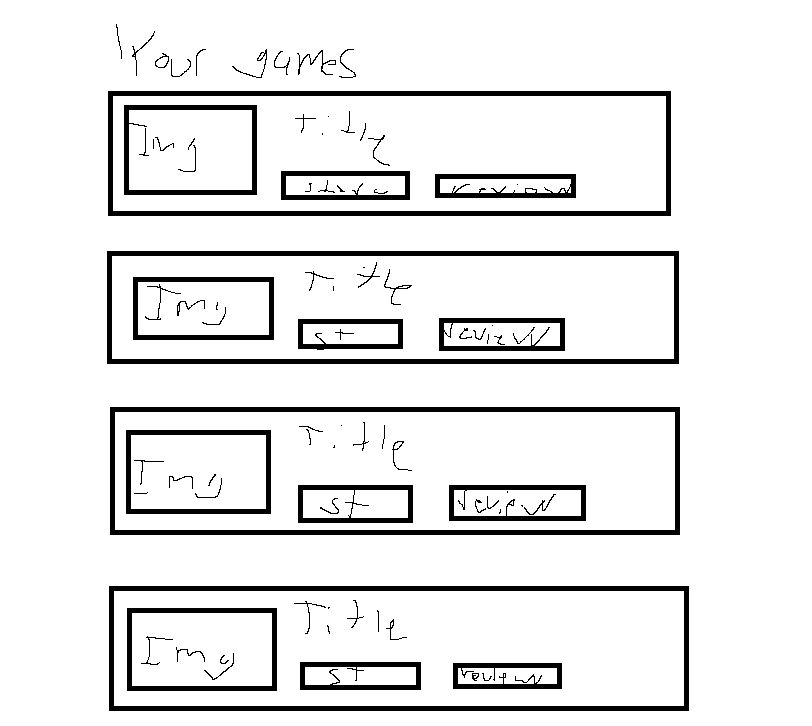 Your games
Img
Title
store
review
Img
Title
st
review
Img
Title
st
review
Img
Title
st
review